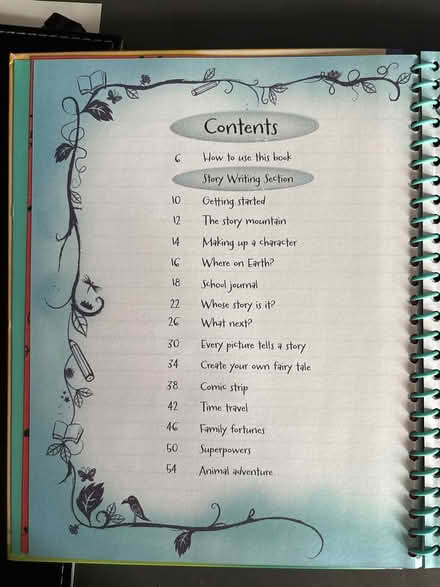 Contents
6 How to use this book
Story Writing Section
10 Getting started
12 The story mountain
14 Making up a character
16 Where on Earth?
18 School journal
22 Whose story is it?
26 What next?
30 Every picture tells a story
34 Create your own fairy tale
38 Comic strip
42 Time travel
46 Family fortunes
50 Superpowers
54 Animal adventure